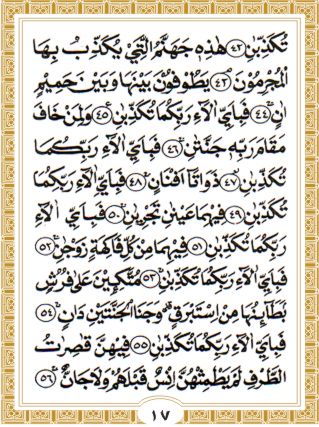 تُكَذِّبٰنِ ﴿٤٢﴾ هٰذِهٖ جَهَنَّمُ الَّتِيْ يُكَذِّبُ بِهَا
الْمُجْرِمُوْنَ ﴿٤٣﴾ يَطُوْفُوْنَ بَيْنَهَا وَبَيْنَ حَمِيْمٍ
اٰنٍ ﴿٤٤﴾ فَبِاَيِّ اٰلَآءِ رَبِّكُمَا تُكَذِّبٰنِ ﴿٤٥﴾ وَلِمَنْ خَافَ
مَقَامَ رَبِّهٖ جَنَّتٰنِ ﴿٤٦﴾ فَبِاَيِّ اٰلَآءِ رَبِّكُمَا
تُكَذِّبٰنِ ﴿٤٧﴾ ذَوَاتَآ اَفْنَانٍ ﴿٤٨﴾ فَبِاَيِّ اٰلَآءِ رَبِّكُمَا
تُكَذِّبٰنِ ﴿٤٩﴾ فِيْهِمَا عَيْنٰنِ تَجْرِيٰنِ ﴿٥٠﴾ فَبِاَيِّ اٰلَآءِ
رَبِّكُمَا تُكَذِّبٰنِ ﴿٥١﴾ فِيْهِمَا مِنْ كُلِّ فَاكِهَةٍ زَوْجٰنِ ﴿٥٢﴾
فَبِاَيِّ اٰلَآءِ رَبِّكُمَا تُكَذِّبٰنِ ﴿٥٣﴾ مُتَّكِـِٕيْنَ عَلٰى فُرُشٍ
بَطَآىِٕنُهَا مِنْ اِسْتَبْرَقٍ وَجَنَا الْجَنَّتَيْنِ دَانٍ ﴿٥٤﴾
فَبِاَيِّ اٰلَآءِ رَبِّكُمَا تُكَذِّبٰنِ ﴿٥٥﴾ فِيْهِنَّ قٰصِرٰتُ
الطَّرْفِ لَمْ يَطْمِثْهُنَّ اِنْسٌ قَبْلَهُمْ وَلَا جَآنٌّ ﴿٥٦﴾
١٧